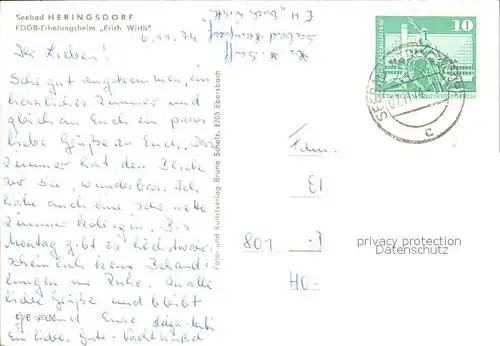 Seebad HERINGSDORF
FDGB-Erholungsheim „Erich Wirth“
6.11.74
Ihr Lieben!
Sehr gut angekommen, ein
herrliches Zimmer und
gleich an Euch ein paar
liebe Grüße an Euch. Das
Zimmer hat den Blick
zur See, wunderbar. Ich
habe auch eine sehr nette
Zimmerkollegin. Bis
Montag gibt es höchstwahr-
scheinlich keine Behand-
lungen nur Ruhe. An alle
liebe Grüße und bleibt
gesund Eure Helga
Ein liebes Gute-Nacht
EH „Erich Wirth“
Seebad Heringsdorf
Foto- und Kunstverlag Bruno Scholz, 8705 Ebersbach
10
SEEBAD
c
Fam.
801
privacy protection
Datenschutz